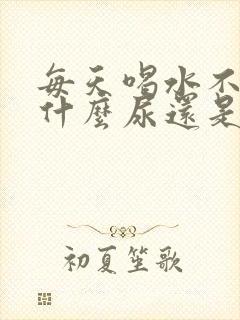 每天喝水不
什麼尿還是
初夏笙歌